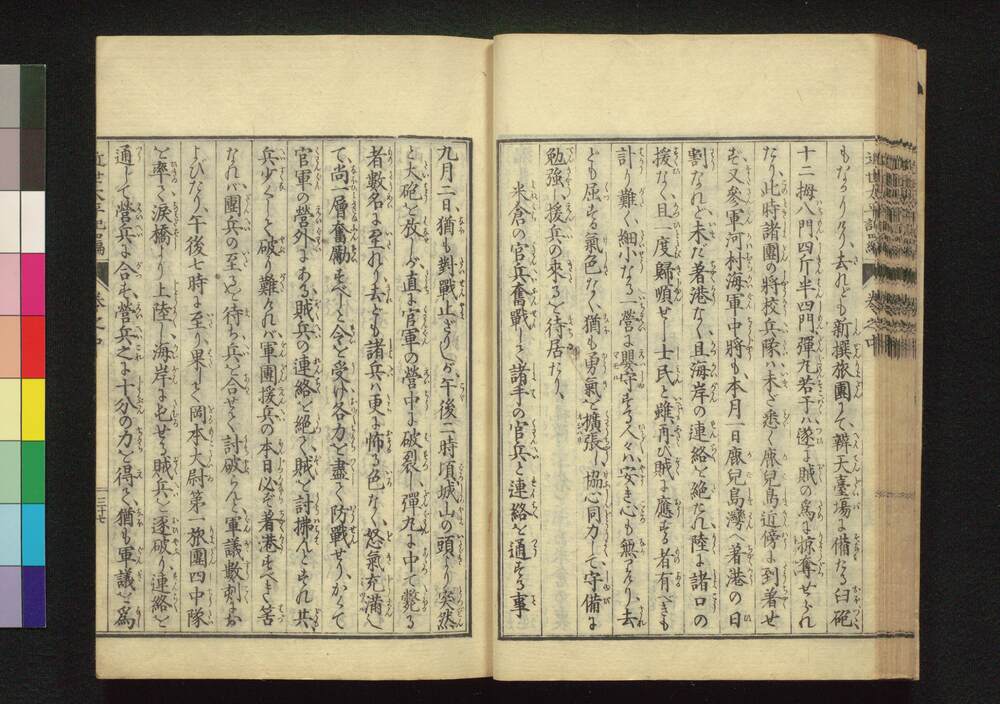 もなかりけり、去れども新撰旅團にて、辨天臺塲に備たる臼砲
十二拇八門四斤半四門彈丸若干ハ遂に賊の爲に掠奪せられ
たり、此時諸團の將校兵隊ハ未だ悉く鹿兒島近傍に到着せ
ず、又參軍河村海軍中將も、本月一日鹿兒島灣へ着港の日
割なれど、未だ着港なく、且海岸の連絡を絶たれ陸は諸口の
援なく、且一度歸順せし士民と雖再び賊に應ずる者有べきも
計り難く、細小なる一營に嬰守するハ安き心も無りけり、去
ども屈する氣色なく、猶も勇氣を擴張し、協心同力して、守備に
勉強し、援兵の來るを待居たり、
米倉の官兵奮戰して諸手の官兵と連絡を通ずる事
九月二日、猶も對戰止ざりしが、午後二時頃城山の頭より突然
と大砲を放しぶ、直に官軍の營中に破裂し、彈丸に中て斃るゝ
者數名に至れり、去ども諸兵ハ更に怖るゝ色なく、怒氣充滿し
て、尚一層奮勵すべしと令を受け各力を盡く防戰せり、かくて
官軍の營外にある、賊兵の連絡を絶く、賊を討拂んとすれ共、
兵少くして破り難ければ軍團援兵の本日必ず着港すべき筈
なれバ、團兵の至るを待ち、兵を合せて討破らんと、軍議數刻にお
よびたり、午後七時に至り果して岡本大尉第一旅團四中隊
を率ゐて涙橋より上陸し、海岸に屯せる賊兵を逐破り、連絡を
通じて營兵に合せ、營兵之に十分の力を得て、猶も軍議を爲
近世太平記二編
卷之中
二十七